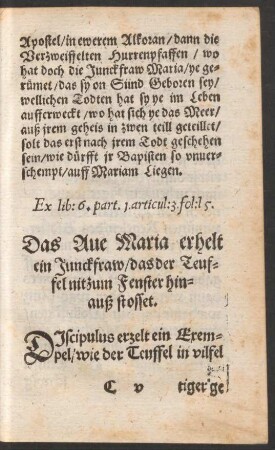 Apostel/in ewerem Alkoran/dann die
Verzweiffelten Hurrenpfaffen / wo
hat doch die Junckfraw Maria/ye ge-
rümet/das sy on Sünd Geboren sey/
wellichen Todten hat sy ye im Leben
aufferweckt/wo hat sich ye das Meer/
auß jrem geheis in zwen teill geteillet/
solt das erst nach jrem Todt geschehen
sein/wie dürfft jr Bapisten so vnuer-
schempt/auff Mariam Liegen.
Ex lib: 6. part. 1. articul: 3. fol: 15.
Das Aue Maria erhelt
ein Junckfraw/das der Teuf-
fel nit zum Fenster hin-
auß stosset.
DIscipulus erzelt ein Exem-
pel/wie der Teuffel in vilfel
C v tiger ge